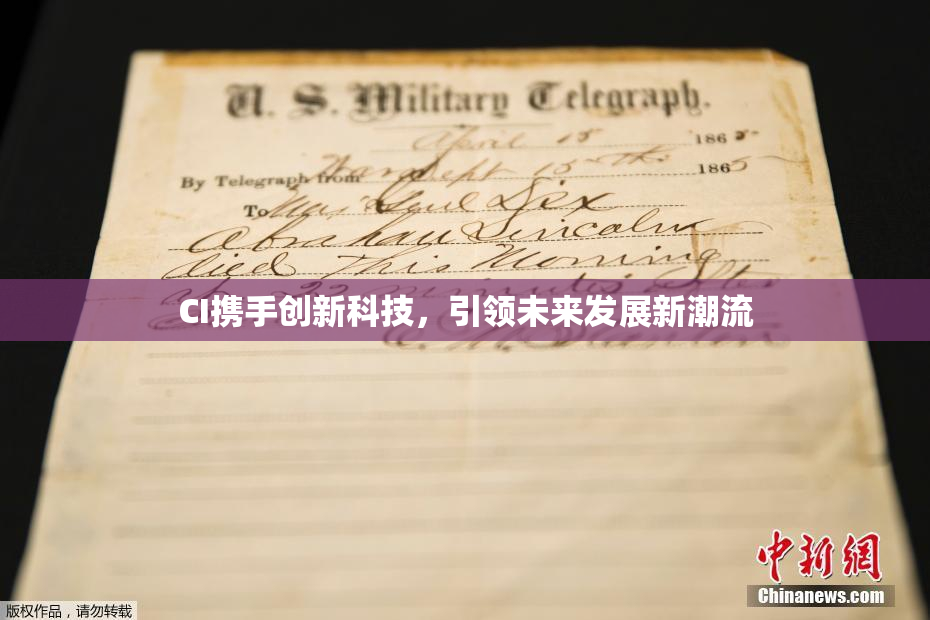 U. S. Military Telegraph.
April 15 1865
By Telegraph from War Dept 15th 1865
To Maj Genl Dix
Abraham Lincoln
died This Morning
22 minutes after
CI携手创新科技，引领未来发展新潮流
E. M. Stanton
中新网
Chinanews.com
版权作品，请勿转载